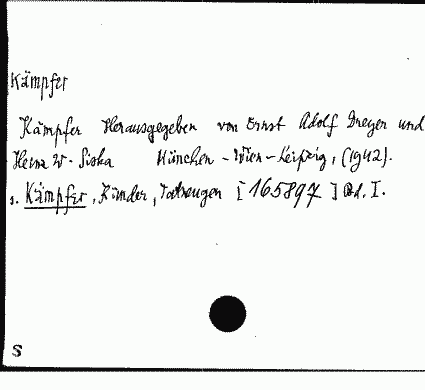 Kämpfer
Kämpfer Herausgegeben von Ernst Adolf Dreyer und
Heinz W. Siska München - Wien - Leipzig, (1942).
s. Kämpfer, Künder, Tatzeugen [165897] Bd. I.
S